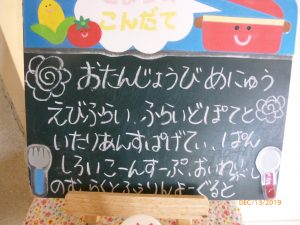 きょうの
こんだて
おたんじょうびめにゅう
えびふらい、ふらいどぽてと
いたりあんすぱげてぃ、ぱん
しろいこーんすーぷ、おいわい
のむ
よーぐると
DEC/13/2019